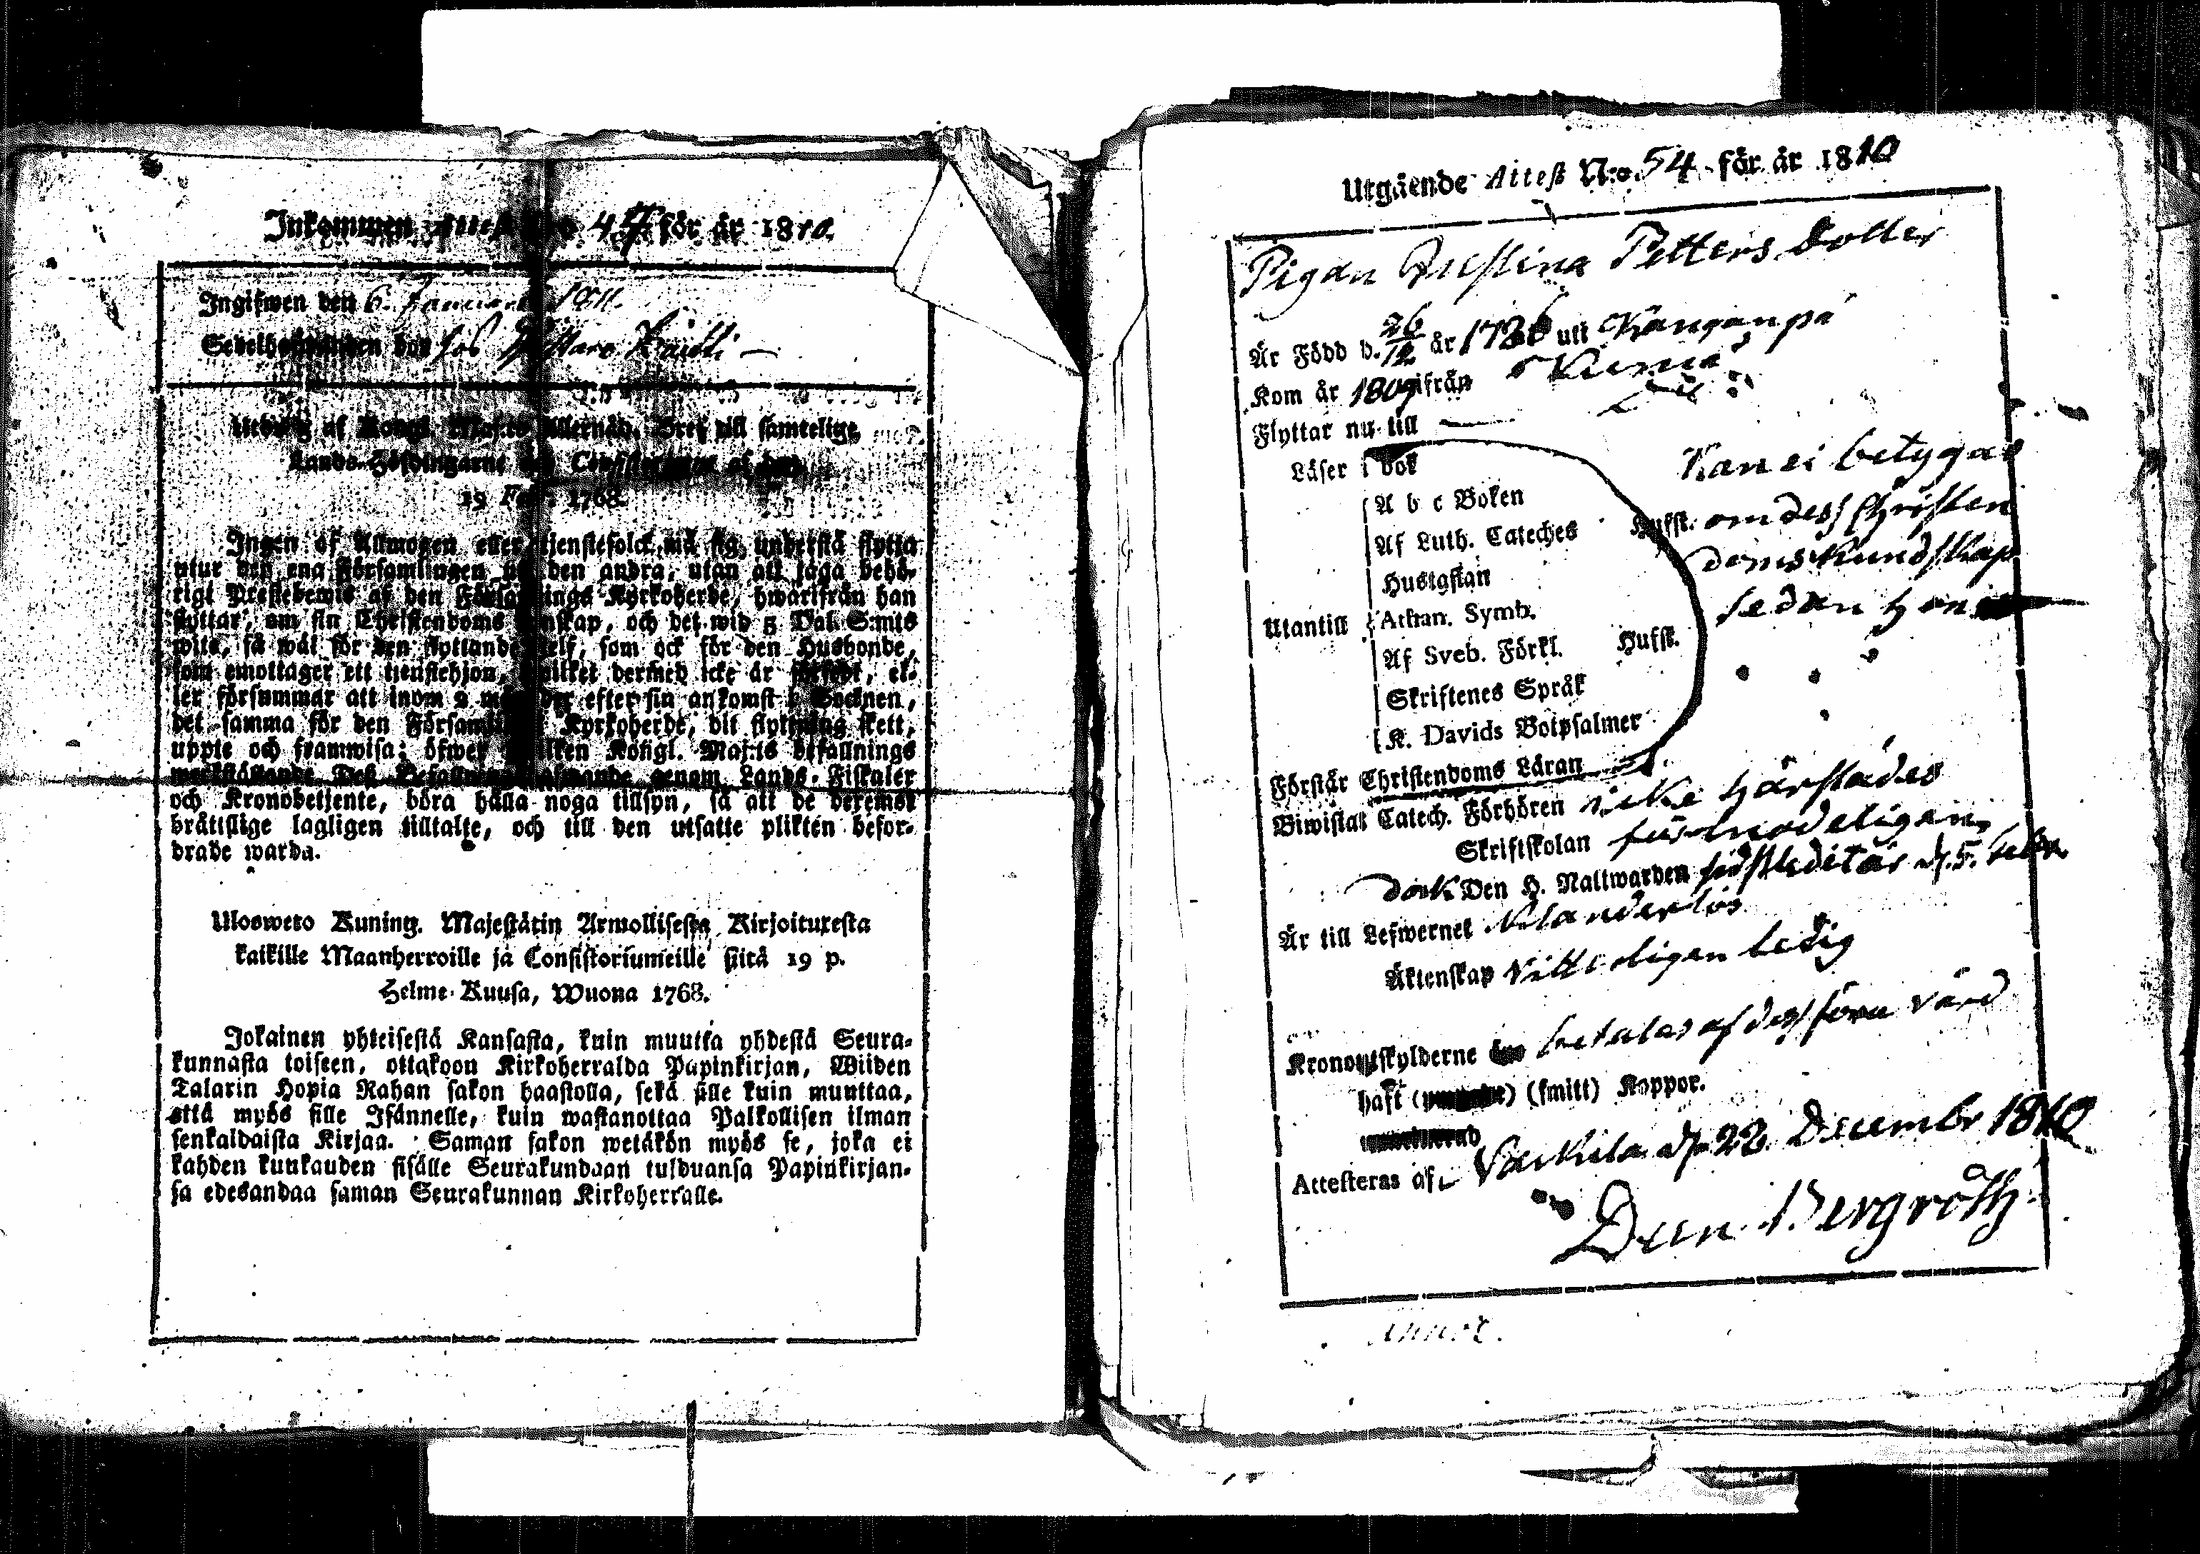 Inkommen Attest N:o 45 för år 1810.
Ingifwen den 6. Januari 1811.
hos Hattare Kaidli
Utdrag af Kongl. Maj:ts Allernåd. Bref till samtelige
Lands-Höfdingarne och Consistorierne af den
19 Febr. 1768.
Ingen af Allmogen eller tjenstefolck må sig understå flytta
utur den ena Församlingen uti den andra, utan att taga behö-
rigt Prestebewis af den Församlings Kyrkoherde, hwarifrån han
flyttar, om sin Christendoms kunskap, och det wid 5 Dal. S:mts
wite, så wäl för den flyttande self, som ock för den Husbonde,
som emottager ett tjenstehjon, hwilket dermed icke är försedt, el-
ler försummar att inom 2 månader efter sin ankomst i Socknen,
det samma för den Församlings Kyrkoherde, dit flyttning skett,
uppte och framwisa; öfwer hwilken Kongl. Maj:ts befallnings
werkställande Deß Befallningshafwande genom Lands-Fiskaler
och Kronobetjente, böra hålla noga tillsyn, så att de deremot
bråttslige lagligen tilltalte, och till den utsatte plikten befor-
drade warda.
Ulosweto Kuning. Majestätin Armollisesta Kirjoituxesta
kaikille Maanherroille ja Consistoriumeille siitä 19 p.
Helme-Kuusa, Wuona 1768.
Jokainen yhteisestä Kansasta, kuin muutta yhdestä Seura-
kunnasta toiseen, ottakoon Kirkoherralda Papinkirjan, Wiiden
Talarin Hopia Rahan sakon haastolla, sekä sille kuin muuttaa,
että myös sille Isännelle, kuin wastanottaa Palkollisen ilman
senkaldaista Kirjaa. Saman sakon wetäkön myös se, joka ei
kahden kunkauden sisälle Seurakundaan tulduansa Papinkirjan-
sa edesandaa saman Seurakunnan Kirkoherralle.
Utgående Attest N:o 54 för år 1810
Pigan Justina Petters Dotter
Är Född d. 26/12 år 1786 uti Kanganpä
Kom år 1809 ifrån
Flyttar nu till
Läser i bok
Kan ei betygas
A b c Boken
Af Luth. Cateches Hufst. om dess Christen
Hustaflan
doms Kundskap
Utantill Athan. Symb.
sedan hon
Af Sveb. Förkl. Hufst.
Skriftenes Språk
K. Davids Botpsalmer
Förstår Christendoms Läran
Biwistat Catech. Förhören icke härstädes
Skriftskolan
dock Den H. Nattwarden
Är till Lefwernet Klanderlös
Äktenskap Vitterligen ledig
Kronoutskylderne betalas af dess förra värd
haft (smitt) Koppor.
Attesteras af Varkila d. 22 Decembr 1810
Dan Bergroth